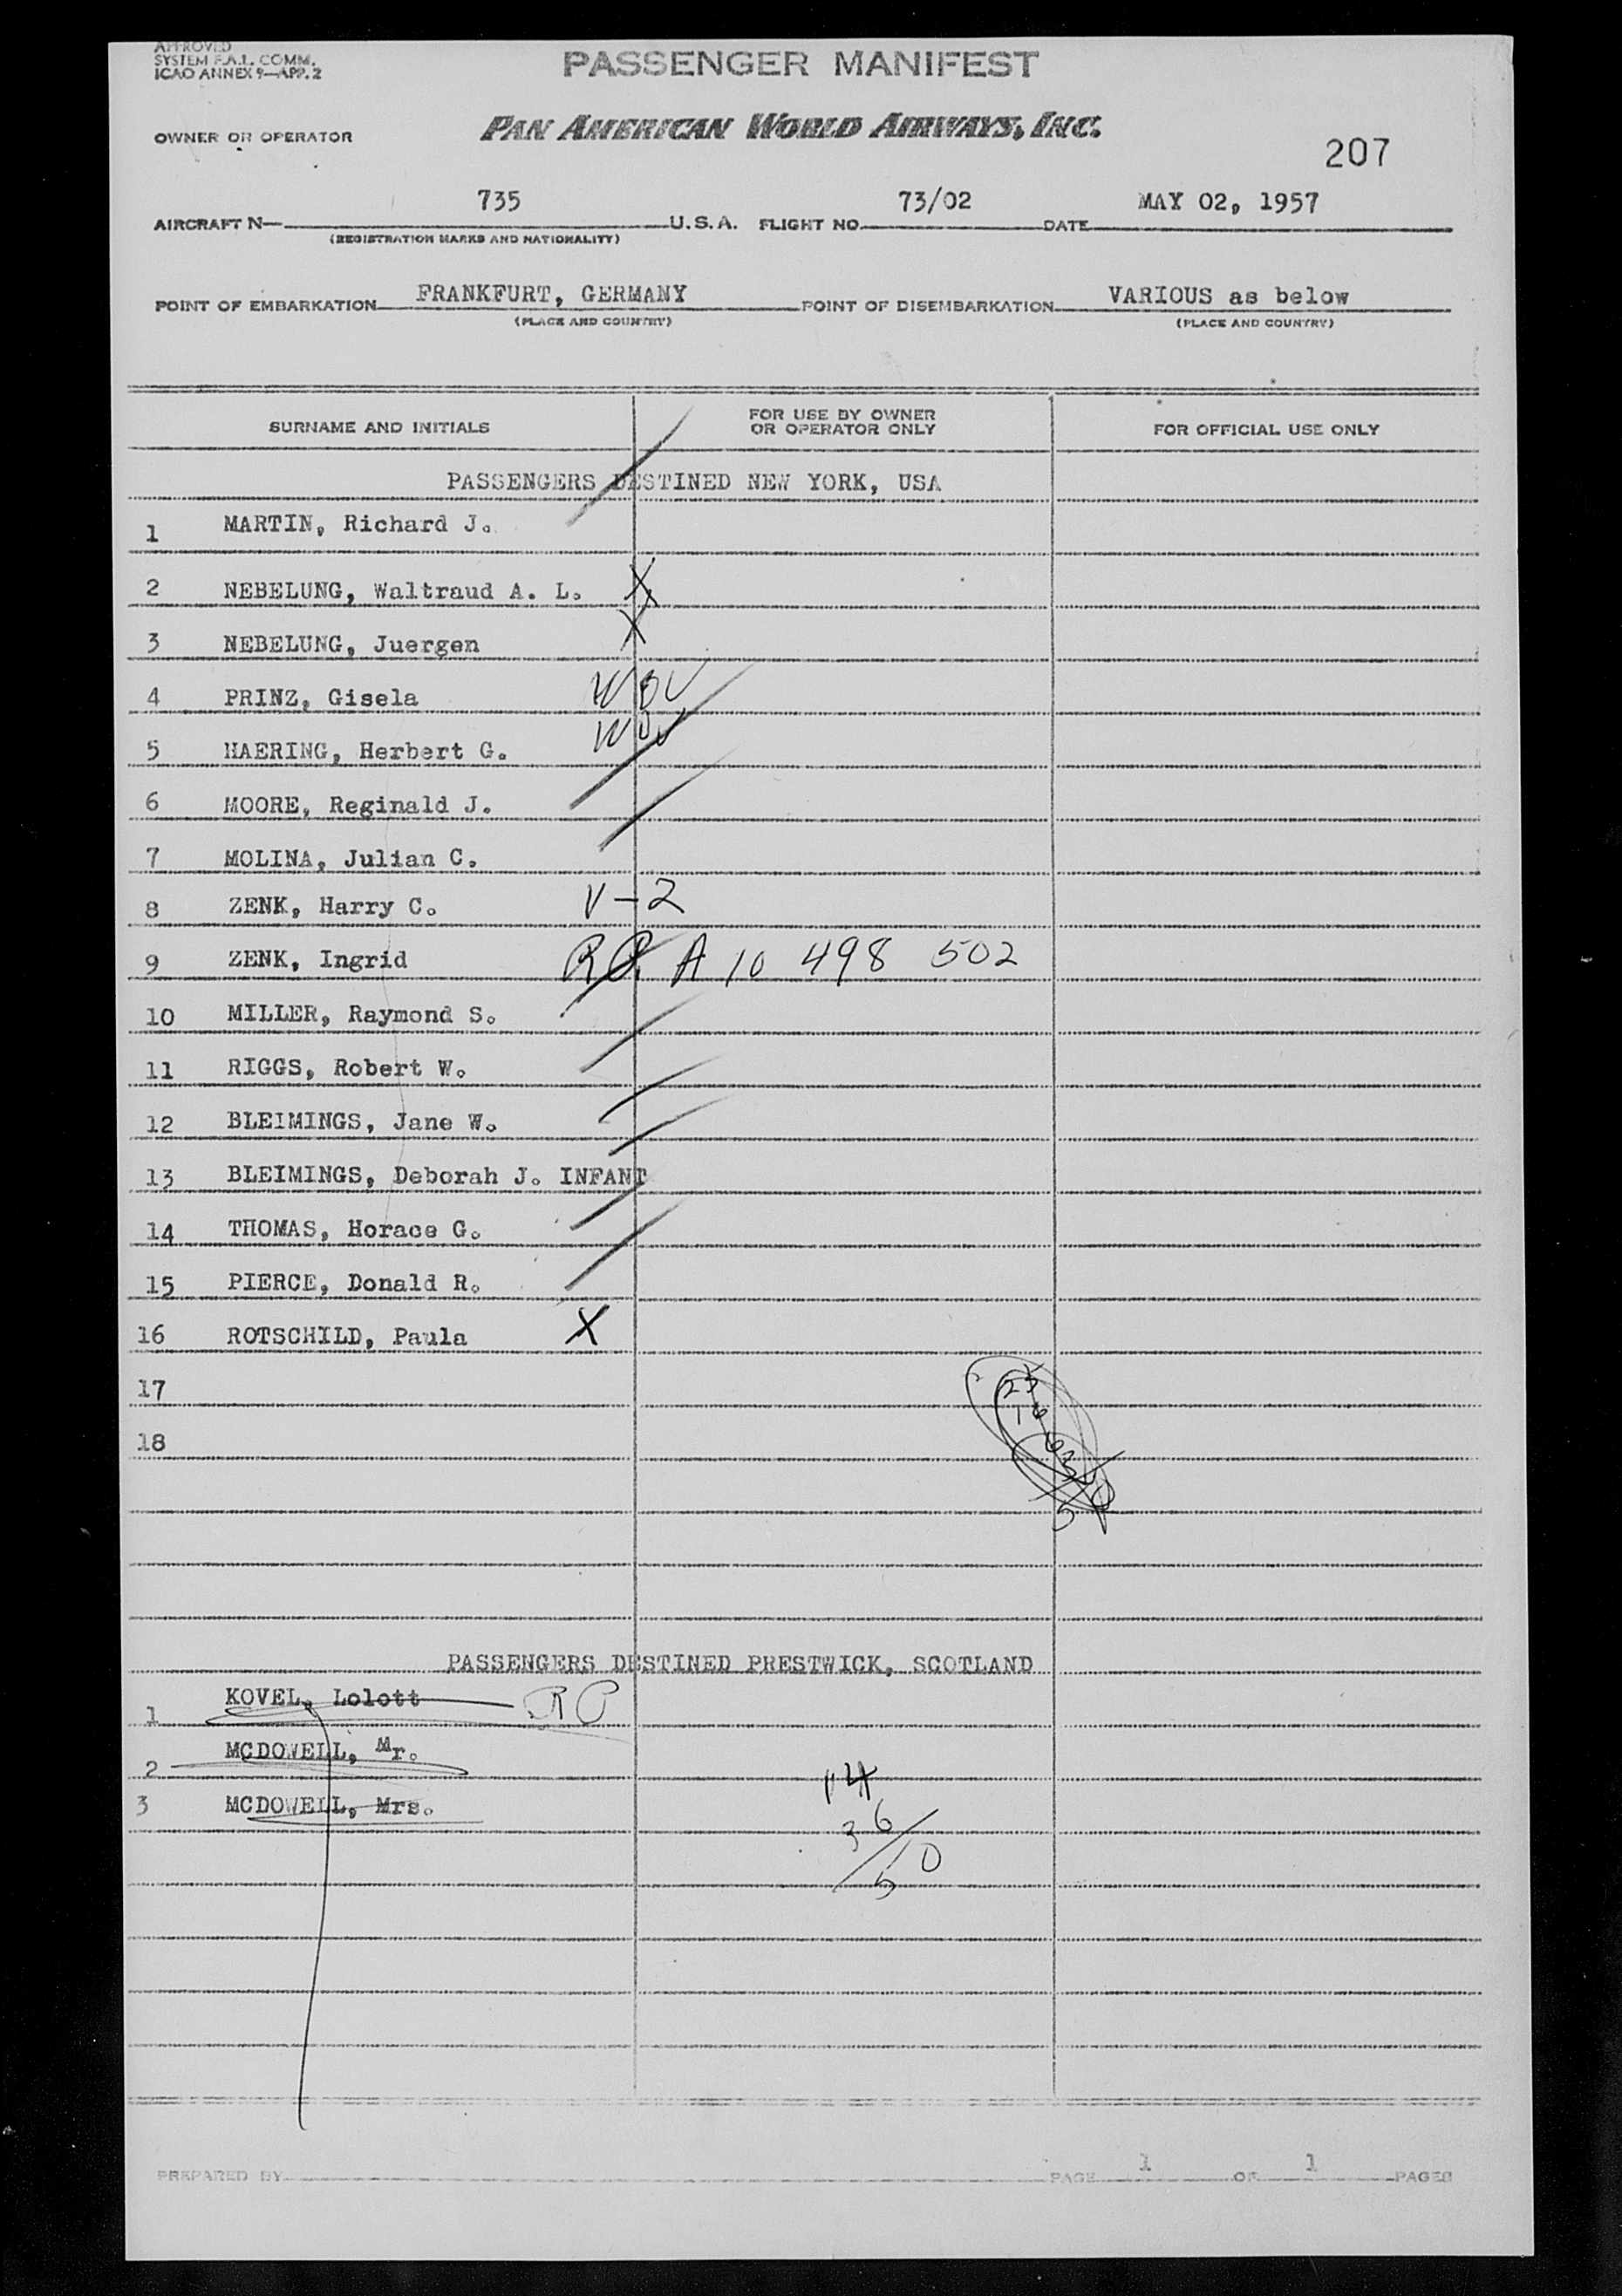 APPROVED
SYSTEM F.A.L. COMM.
ICAO ANNEX 9—APP. 2
PASSENGER MANIFEST
OWNER OR OPERATOR PAN AMERICAN WORLD AIRWAYS, INC.
207
AIRCRAFT N— 735 U.S.A. FLIGHT NO. 73/02 DATE MAY 02, 1957
(REGISTRATION MARKS AND NATIONALITY)
POINT OF EMBARKATION FRANKFURT, GERMANY POINT OF DISEMBARKATION VARIOUS as below
(PLACE AND COUNTRY) (PLACE AND COUNTRY)
SURNAME AND INITIALS FOR USE BY OWNER OR OPERATOR ONLY FOR OFFICIAL USE ONLY
PASSENGERS DESTINED NEW YORK, USA
1 MARTIN, Richard J.
2 NEBELUNG, Waltraud A. L. X
3 NEBELUNG, Juergen X
4 PRINZ, Gisela
5 HAERING, Herbert G.
6 MOORE, Reginald J.
7 MOLINA, Julian C.
8 ZENK, Harry C. V-2
9 ZENK, Ingrid A 10 498 502
10 MILLER, Raymond S.
11 RIGGS, Robert W.
12 BLEIMINGS, Jane W.
13 BLEIMINGS, Deborah J. INFANT
14 THOMAS, Horace G.
15 PIERCE, Donald R.
16 ROTSCHILD, Paula X
17
18
PASSENGERS DESTINED PRESTWICK, SCOTLAND
1 KOVEL, Lolott RP
2 MCDOWELL, Mr.
3 MCDOWELL, Mrs.
14
36
50
PREPARED BY PAGE 1 OF 1 PAGES